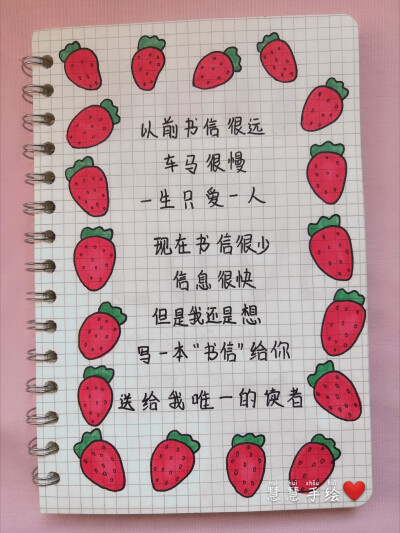 以前书信很远
车马很慢
一生只爱一人
现在书信很少
信息很快
但是我还是想
写一本“书信”给你
送给我唯一的读者
huì huì shǒu huì
慧慧手绘